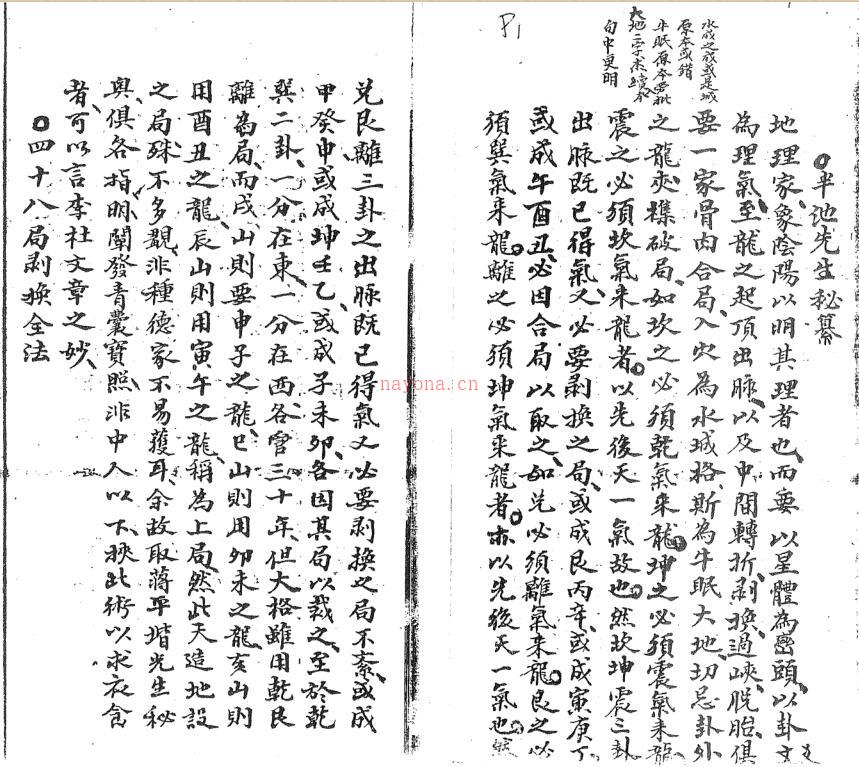 P1
水成之成或是城
原本或错
牛眠原本
大地二字
句中更明
○半池先生秘纂
地理家、象陰陽以明其理者也、而要以星體為巒頭、以卦爻
為理氣、至龍之起頂出脉、以及中間轉折、剥換、過峽、脱胎、俱
要一家骨肉合局、入穴為水城格、斯為牛眠大地、切忌卦外
之龍夾襍破局、如坎之必須乾氣来龍、坤之必須震氣来龍
震之必須坎氣来龍者、以先後天一氣故也、然坎坤震三卦
出脉既已得氣、又必要剥換之局、或成艮丙辛、或成寅庚丁
或成午酉丑、必因合局以取之、如兑必須離氣来龍、艮之必
須巽氣来龍、離之必須坤氣来龍者、亦以先後天一氣也、然
兑艮離三卦之出脉既已得氣又必要剥換之局不紊、或成
甲癸申或成坤壬乙、或成子未卯、各因其局以裁之、至於乾
巽二卦、一分在東、一分在西、各管三十年、但大格雖用乾艮
離為局、而戌山則要申子之龍、巳山則用卯未之龍、亥山則
用酉丑之龍、辰山則用寅午之龍、稱為上局、然此天造地設
之局、殊不多覯、非種德家不易獲耳、余故取蒋平堦先生秘
與、俱各指明、闡發青囊寶照、非中人以下、挾此術以求衣食
者、可以言李杜文章之妙、
○四十八局剥換全法
nayona.cn